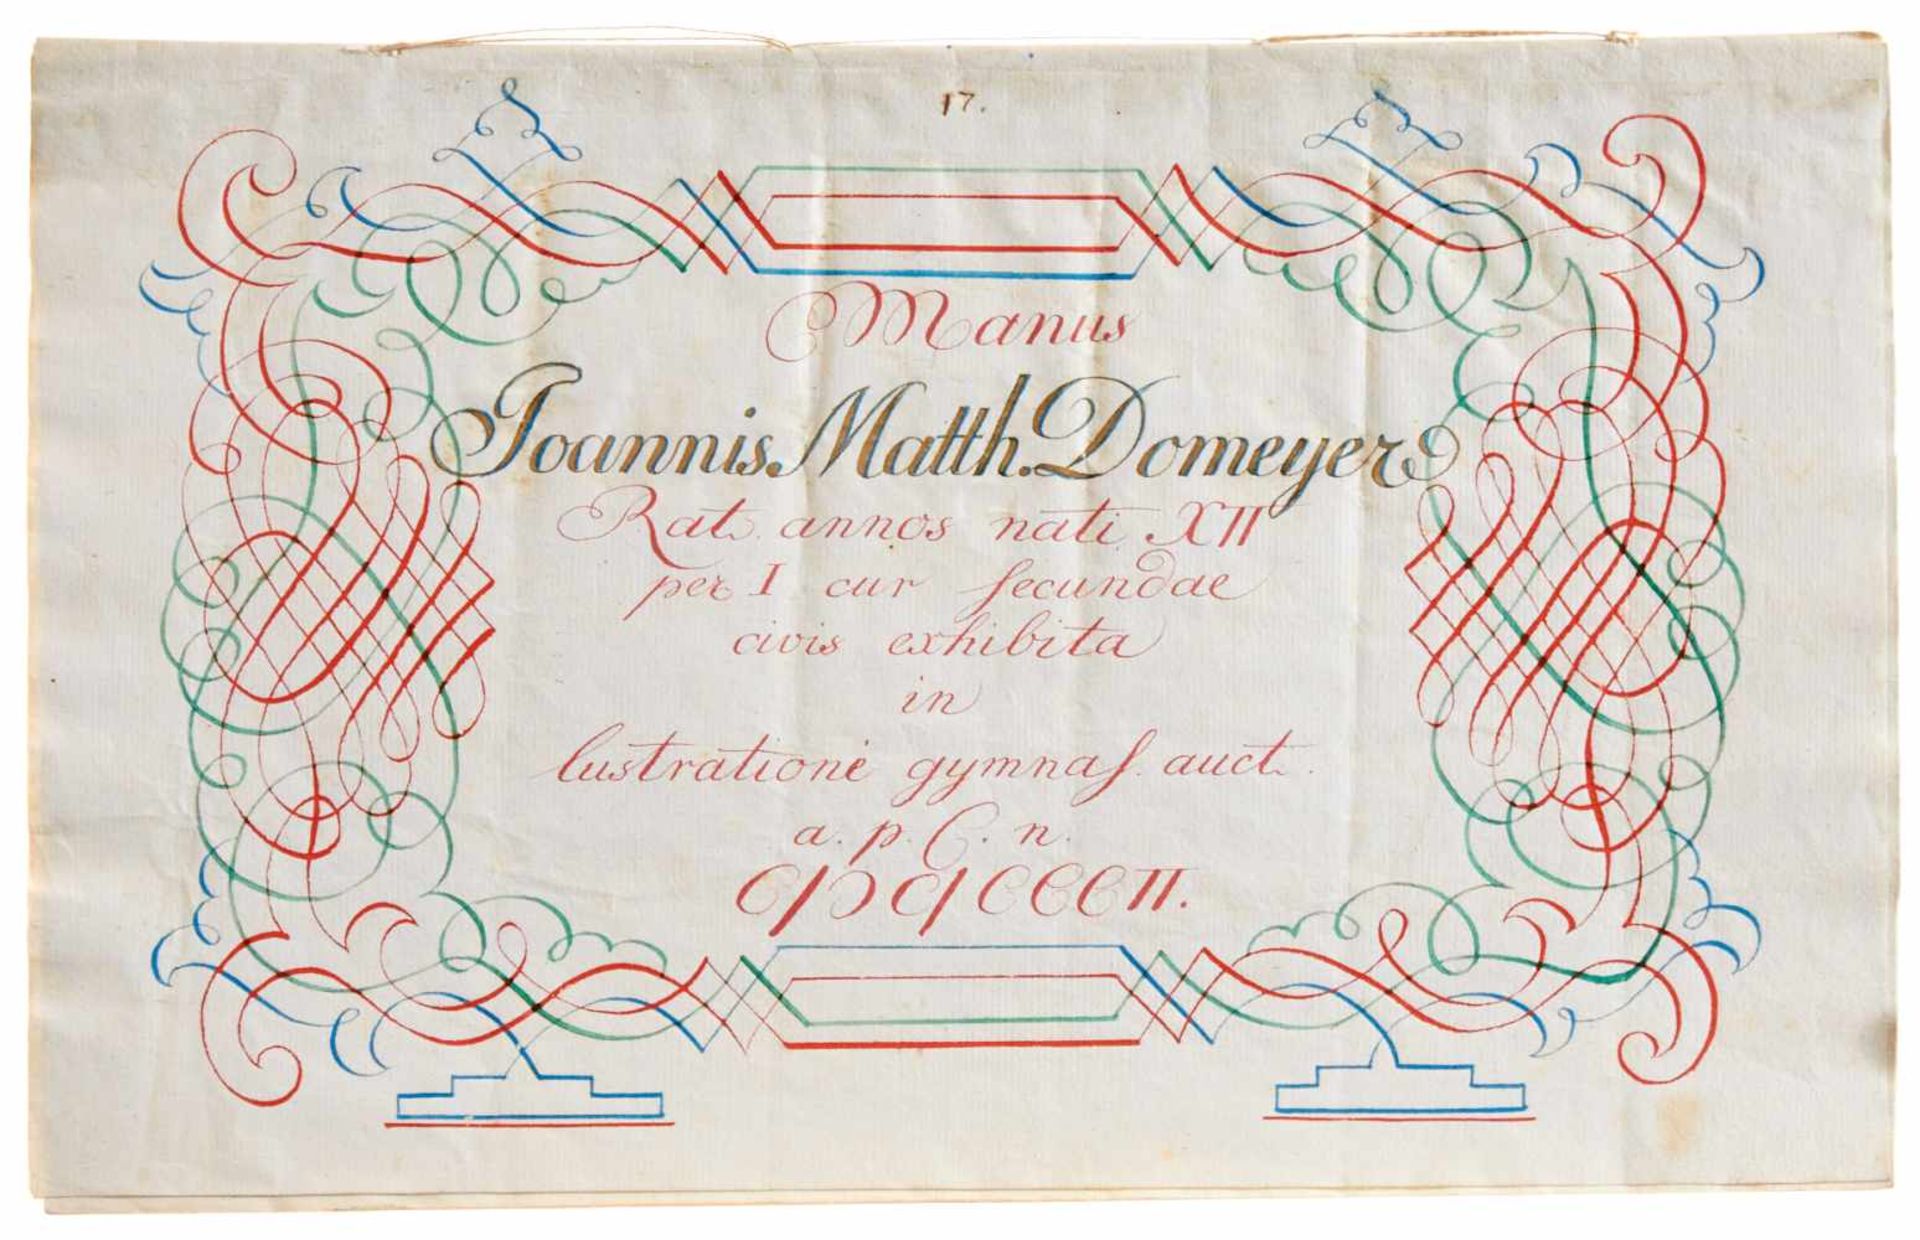 17.
Manus
Joannis Matth. Domeyer
Rat. annos nati XII
per I cur secundae
civis exhibita
in
lustrationė gymnaſ. auct.
a. p. C. n.
CIƆCICCCII.